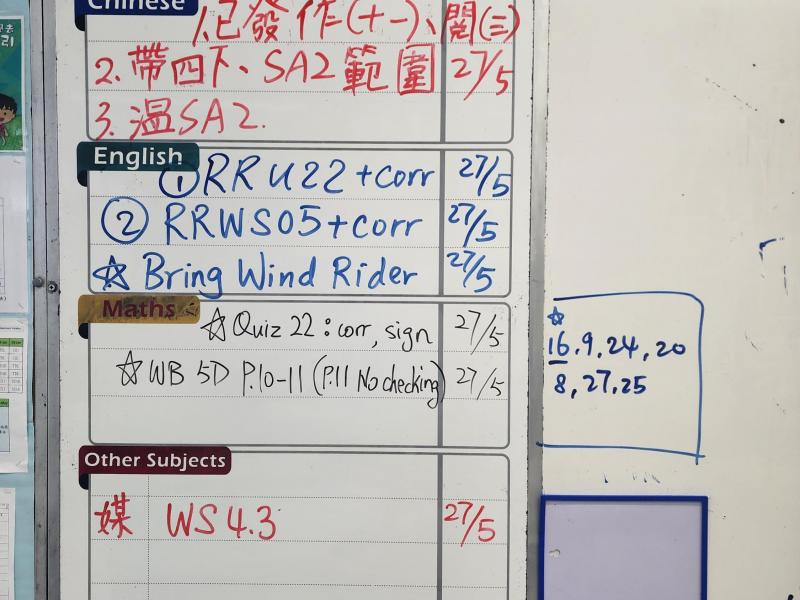 Chinese
1.已發作(十一)、閱(三)
2. 帶四下、SA2範圍 27/5
3. 溫SA2.
English
① RR U22 + corr 27/5
② RRWS05 + corr 27/5
☆ Bring Wind Rider 27/5
Maths
☆ Quiz 22 : corr, sign 27/5
☆ WB 5D P.10-11 (P.11 No checking) 27/5
Other Subjects
媒 WS 4.3 27/5
☆
16, 9, 24, 20
8, 27, 25